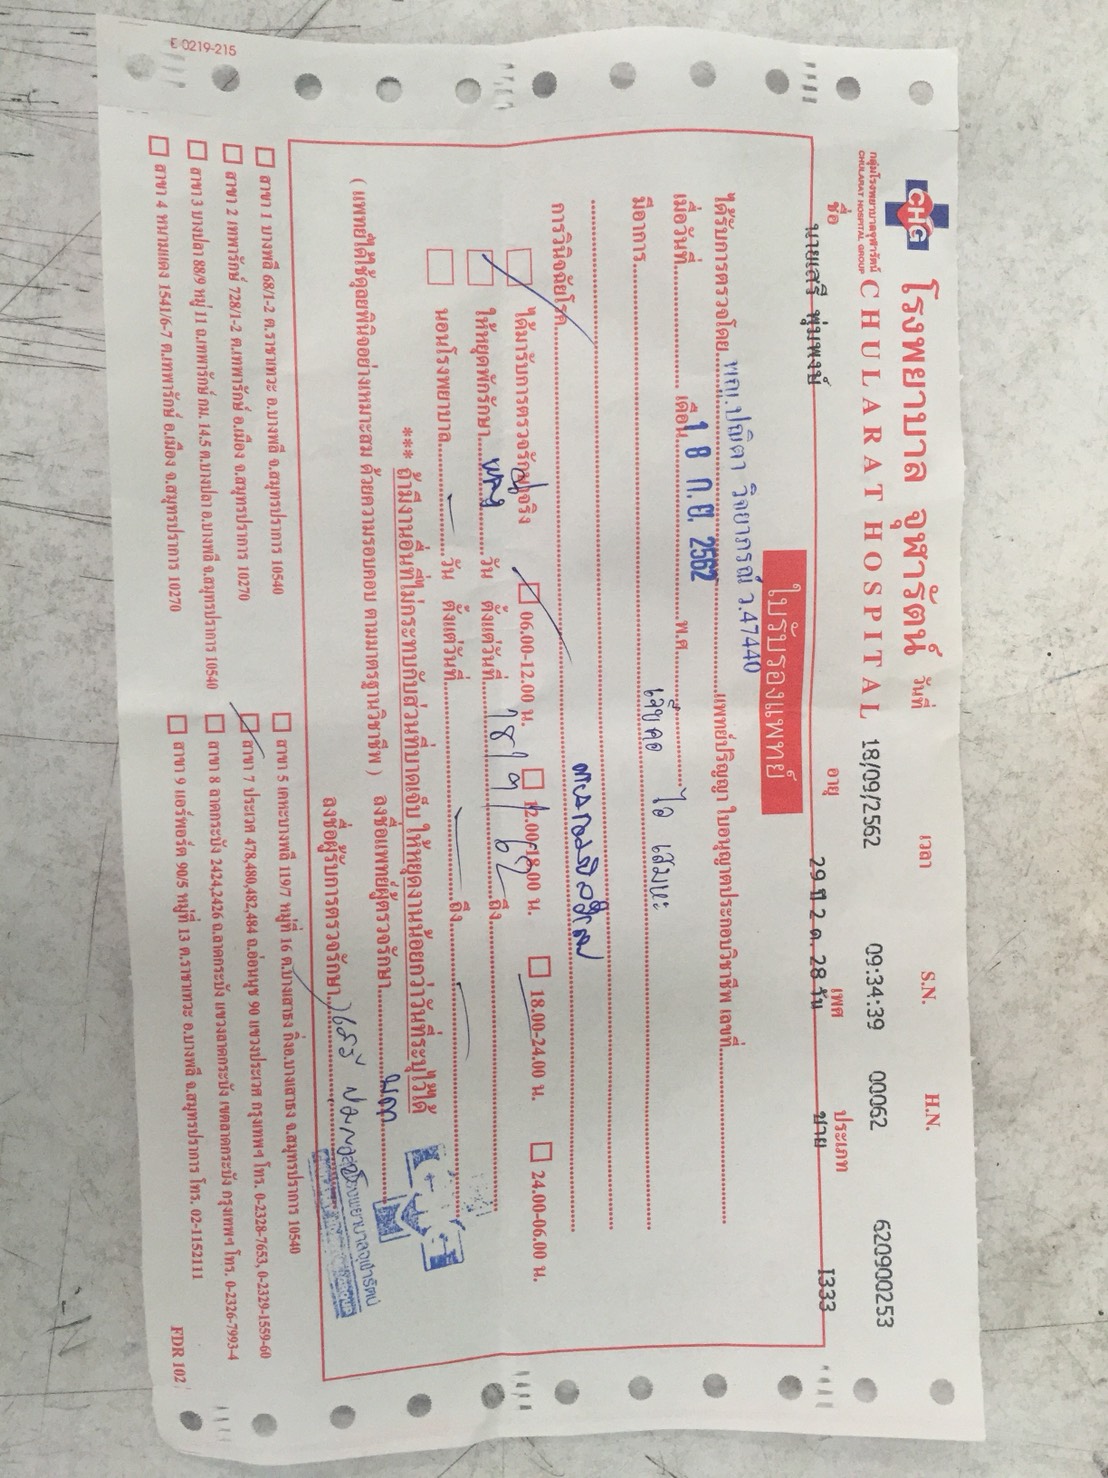 E 0219-215
CHG
กลุ่มโรงพยาบาลจุฬารัตน์
CHULARAT HOSPITAL GROUP
โรงพยาบาล จุฬารัตน์
CHULARAT HOSPITAL
วันที่ 18/09/2562 เวลา 09:34:39 S.N. 00062 H.N. 620900253
ชื่อ นายเสรี พุ่มพงษ์ อายุ 29 ปี 2 ด. 28 วัน เพศ ชาย ประเภท I333
ใบรับรองแพทย์
ได้รับการตรวจโดย พญ.ปณิตา วิจยาภรณ์ ว.47440 แพทย์ปริญญา ใบอนุญาตประกอบวิชาชีพ เลขที่
เมื่อวันที่ เดือน 18 ก.ย. 2562 พ.ศ.
มีอาการ เจ็บคอ ไอ เสมหะ
การวินิจฉัยโรค
ได้มารับการตรวจรักษาจริง 06.00-12.00 น. 12.00-18.00 น. 18.00-24.00 น. 24.00-06.00 น.
ให้หยุดพักรักษา วัน ตั้งแต่วันที่ 18/9/62 ถึง
นอนโรงพยาบาล วัน ตั้งแต่วันที่ ถึง
*** ถ้ามีงานอื่นที่ไม่กระทบกับส่วนที่บาดเจ็บ ให้หยุดงานน้อยกว่าวันที่ระบุไว้ได้
( แพทย์ได้ใช้ดุลยพินิจอย่างเหมาะสม ด้วยความรอบคอบ ตามมาตรฐานวิชาชีพ ) ลงชื่อแพทย์ผู้ตรวจรักษา
ลงชื่อผู้รับการตรวจรักษา
สาขา 1 บางพลี 68/1-2 ต.ราชาเทวะ อ.บางพลี จ.สมุทรปราการ 10540
สาขา 2 เทพารักษ์ 728/1-2 ต.เทพารักษ์ อ.เมือง จ.สมุทรปราการ 10270
สาขา 3 บางปลา 88/9 หมู่ 11 ถ.เทพารักษ์ กม. 14.5 ต.บางปลา อ.บางพลี จ.สมุทรปราการ 10540
สาขา 4 หนามแดง 1541/6-7 ต.เทพารักษ์ อ.เมือง จ.สมุทรปราการ 10270
สาขา 5 เคหะบางพลี 119/7 หมู่ที่ 16 ต.บางเสาธง กิ่งอ.บางเสาธง จ.สมุทรปราการ 10540
สาขา 7 ประเวศ 478,480,482,484 ถ.อ่อนนุช 90 แขวงประเวศ กรุงเทพฯ โทร. 0-2328-7653, 0-2329-1559-60
สาขา 8 ลาดกระบัง 2424,2426 ถ.ลาดกระบัง แขวงลาดกระบัง เขตลาดกระบัง กรุงเทพฯ โทร. 0-2326-7993-4
สาขา 9 แอร์พอร์ต 90/5 หมู่ที่ 13 ต.ราชาเทวะ อ.บางพลี จ.สมุทรปราการ โทร. 02-1152111
FDR 102